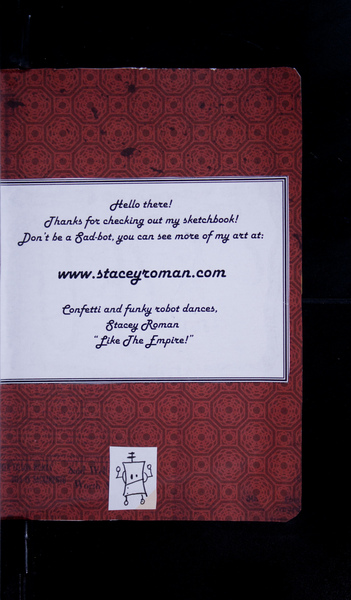 Hello there!
Thanks for checking out my sketchbook!
Don't be a Sad-bot, you can see more of my art at:
www.staceyroman.com
Confetti and funky robot dances,
Stacey Roman
"Like The Empire!"